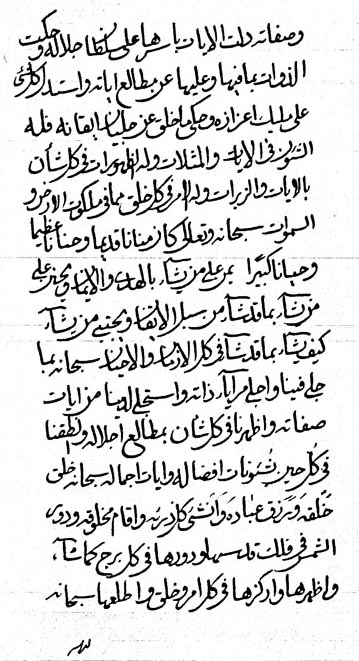 وصفاته دلت الايات باسرها على سلطان جلاله وحكت
الذوات بما فيها وعليها عن مطالع اياته واستدل كلشئ
على مليك اعزازه وحكى ما خلق عن جليل ايقانه فله
الشئون فى الايات والمثلات وله الظهورات فى كل شان
بالايات والزبرات وله الامر فى كل خلق مما فى ملكوت الارض و
السموات سبحانه وتعالى كان منانا قديما وحنانا عظيما
وحيانا كبيرا يمن على من يشاء بالهدى والايمان ويحنن على
من يشاء بما قد شاء من سبل الايقان ويجتبى من يشاء
كيف يشاء بما قد شاء فى كل الازمان والاحيان سبحانه بما
جلى فينا واجلى مرآيا ذاته واستجلى لدينا من ايات
صفاته واظهرنا فى كل شان بمطالع اجلاله ولطفنا
فى كل حين بشئونات افضاله وايات اجماله سبحانه خلق
خلقه ورزق عباده وانشئ كل بريته واقام مخلقه ودور
الشمس فى فلك قدسها ودورها فى كل برج كما شاء
واظهرها واركزها فى كل امر وخلق واطلعها سبحانه